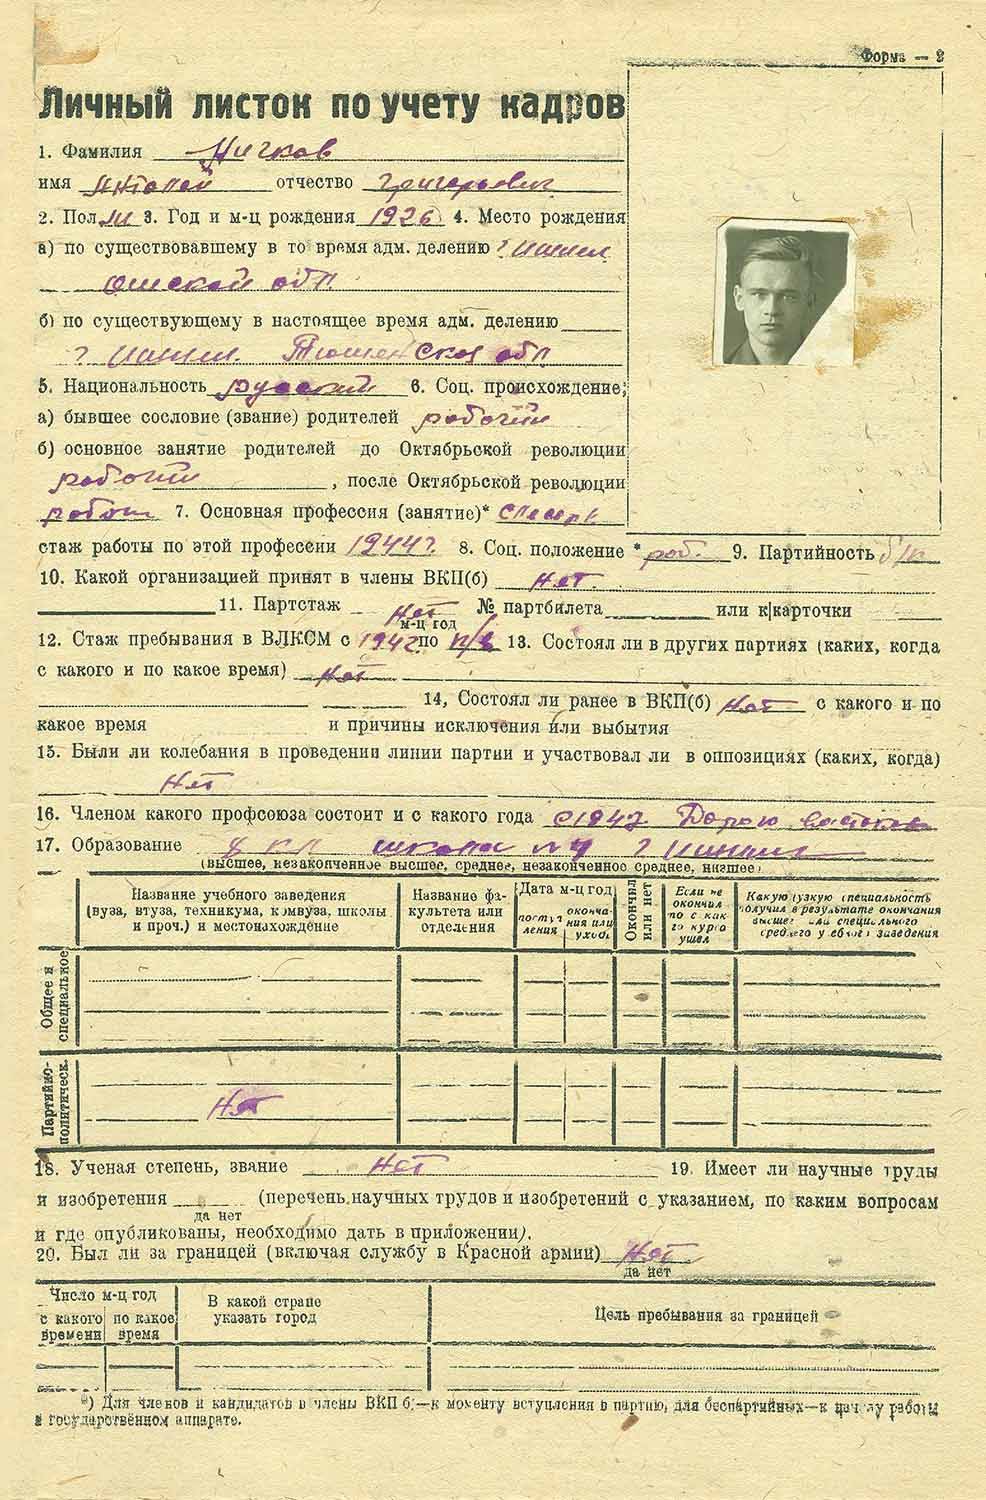 Форма — 2
Личный листок по учету кадров
1. Фамилия Ничков
имя отчество Григорьевич
2. Пол М 3. Год и м-ц рождения 1926 4. Место рождения
а) по существовавшему в то время адм. делению г. Ишим
Омской обл.
б) по существующему в настоящее время адм. делению
г. Ишим. Тюменской обл
5. Национальность русский 6. Соц. происхождение;
а) бывшее сословие (звание) родителей рабочий
б) основное занятие родителей до Октябрьской революции
рабочий, после Октябрьской революции
рабоч 7. Основная профессия (занятие)* слесарь
стаж работы по этой профессии 1944 г. 8. Соц. положение * раб. 9. Партийность б/п
10. Какой организацией принят в члены ВКП(б) Нет.
11. Партстаж Нет № партбилета или к|карточки
м-ц год
12. Стаж пребывания в ВЛКСМ с 1942 г. по п/в 13. Состоял ли в других партиях (каких, когда
с какого и по какое время) Нет
14, Состоял ли ранее в ВКП(б) Нет с какого и по
какое время и причины исключения или выбытия
15. Были ли колебания в проведении линии партии и участвовал ли в оппозициях (каких, когда)
Нет
16. Членом какого профсоюза состоит и с какого года с 1942
17. Образование школа № 4 г. Ишим
(высшее, незаконченное высшее, среднее, незаконченное среднее, низшее)
Название учебного заведения (вуза, втуза, техникума, комвуза, школы и проч.) и местонахождение
Название факультета или отделения
Дата м-ц год
поступления
окончания или ухода
Окончил или нет
Если не окончил то с какого курса ушел
Какую узкую специальность получил в результате окончания высшего или специального среднего учебного заведения
Общее и специальное
Партийно-политическ.
Нет
18. Ученая степень, звание Нет 19. Имеет ли научные труды
и изобретения (перечень научных трудов и изобретений с указанием, по каким вопросам
да нет
и где опубликованы, необходимо дать в приложении).
20. Был ли за границей (включая службу в Красной армии) Нет
да нет
Число м-ц год
с какого времени
по какое время
В какой стране указать город
Цель пребывания за границей
*) Для членов и кандидатов в члены ВКП б—к моменту вступления в партию, для беспартийных—к началу работы
в государственном аппарате.